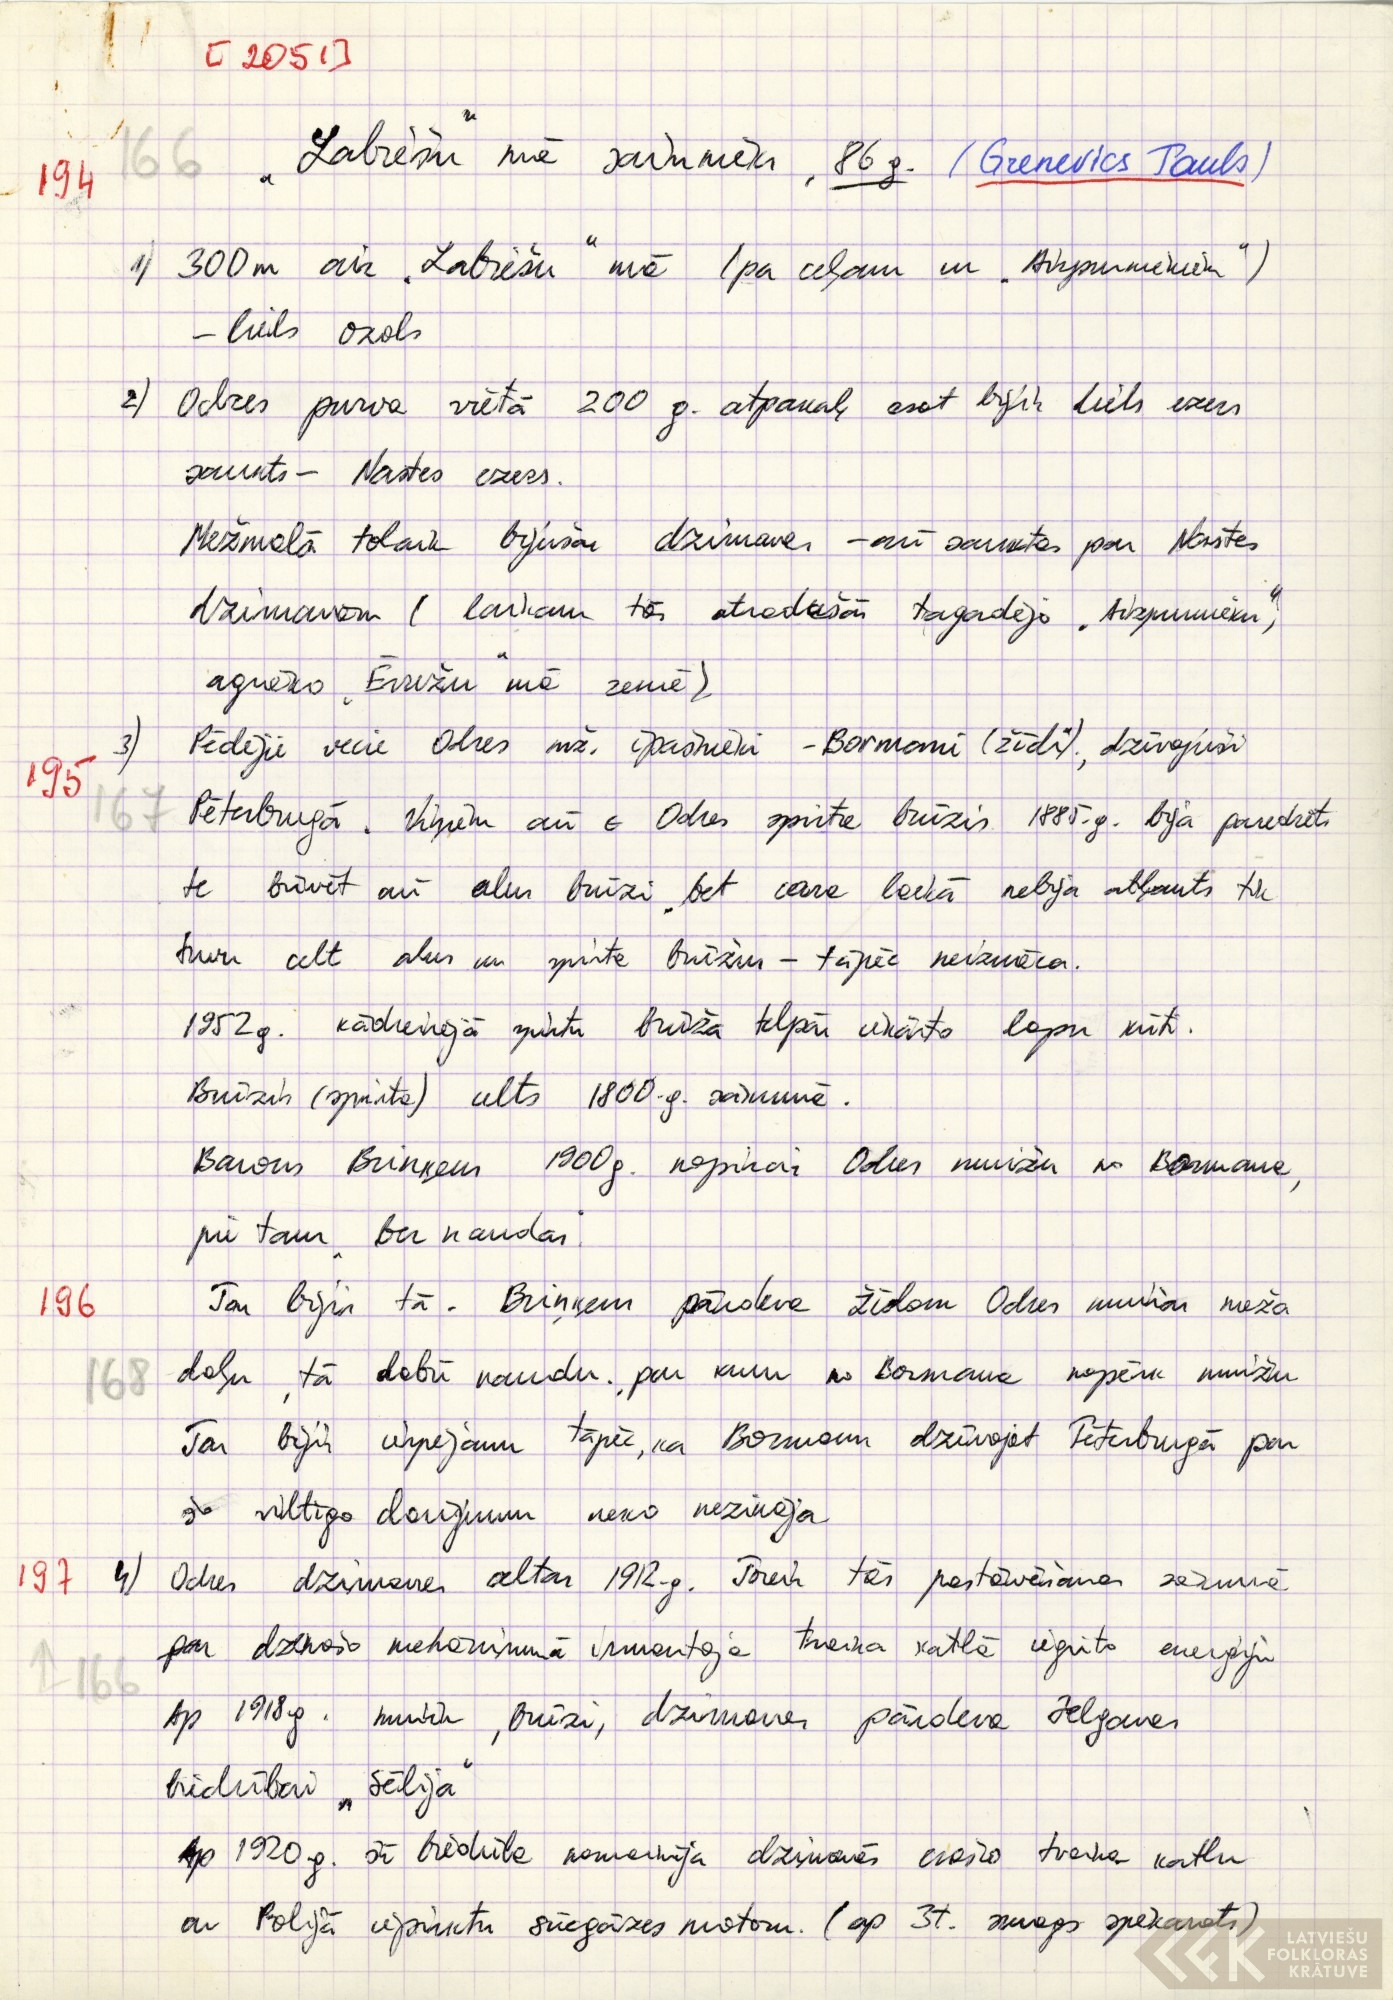 [2051]
194 166 „Labrēšu" mā saimnieks, 86 g. (Grenevics Pauls)
1) 300m aiz „Labrēšu" mā (pa ceļam uz „Aizpurniekiem")
– liels ozols
2) Odzes purva vietā 200 g. atpakaļ esot bijis liels ezers
saukts – Nastes ezers.
Mežmalā tolaik bijušas dzirnavas – arī sauktas par Nastes
dzirnavām (laikam tās atradušās tagadējo „Aizpurnieku",
agrāko „Ēvužu" mā zemē)
195 3) Pēdējie vecie Odzes mž. īpašnieki – Bormaņi (žīdi), dzīvojuši
167 Pēterburgā. Viņiem arī Odzes spirta brūzis 1885.g. bija paredzēts
te būvēt arī alus brūzi, bet cara laikā nebija atļauts tik
tuvu celt alus un spirta brūžus – tāpēc neiznāca.
1952g. kādreizējā spirta brūža telpās iekārto lopu kūti.
Brūzis (spirta) celts 1800.g. sākumā.
Barons Briņķens 1900g. nopircis Odzes muižu no Bormaņa,
pie tam „bez naudas".
196 Tas bijis tā. Briņķens pārdeva žīdam Odzes muižas meža
168 daļu, tā dabū naudu, par kuru no Bormaņa nopērk muižu
Tas bijis iespējams tāpēc, ka Bormans dzīvojot Pēterburgā par
šo viltīgo darījumu neko nezināja
197 4) Odzes dzirnavas celtas 1912.g. Toreiz tās pastāvēšanas sākumā
par dzinošo mehānismu izmantoja tvaika katlā iegūto enerģiju
↑166 Ap 1918g. muižu, brūzi, dzirnavas pārdeva Jelgavas
biedrībai „Sēlija"
Ap 1920g. šī biedrība nomainīja dzirnavās esošo tvaika katlu
ar Polijā iepirktu sūcgāzes motoru. (ap 3t. smags spēkarats)
LATVIEŠU
FOLKLORAS
KRĀTUVE